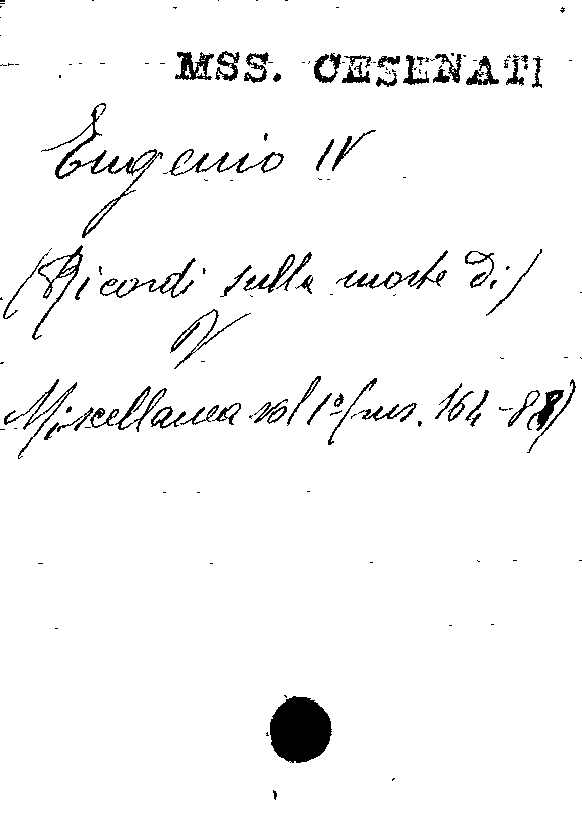 MSS. CESENATI
Eugenio IV
(Ricordi sulla morte di)
V
Miscellanea vol 1º (ms. 164-